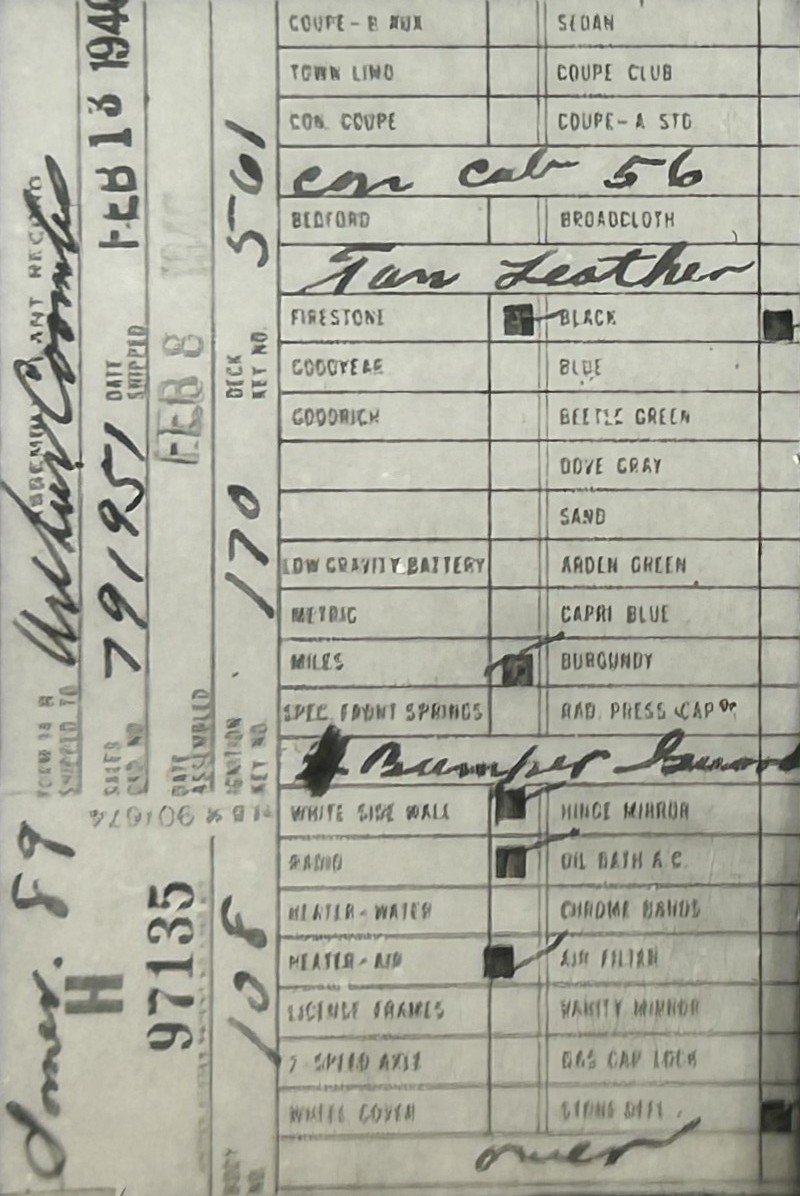 COUPE-B AUX SEDAN
TOWN LIMO COUPE CLUB
CON. COUPE COUPE-A STD
con cab 56
BEDFORD BROADCLOTH
Tan Leather
FIRESTONE BLACK
GOODYEAR BLUE
GOODRICH BEETLE GREEN
DOVE GRAY
SAND
LOW GRAVITY BATTERY ARDEN GREEN
METRIC CAPRI BLUE
MILES BURGUNDY
SPEC. FRONT SPRINGS RAD. PRESS CAP
Bumper Guard
WHITE SIDE WALL HINGE MIRROR
RADIO OIL BATH A.C.
HEATER-WATER CHROME BANDS
HEATER-AIR AIR
LICENSE FRAMES VANITY MIRROR
2 SPEED AXLE GAS CAP LOCK
WHITE COVER STONE DEFL.
over
ASSEMBLY PLANT RECORD
FORM 18 R
SHIPPED TO Arthur
SALES ORD. NO. 791951 DATE SHIPPED FEB 13 1946
DATE ASSEMBLED FEB 8 1946
IGNITION KEY NO. 170 DECK KEY NO. 561
89
H
97135
901674
BODY NO. 108